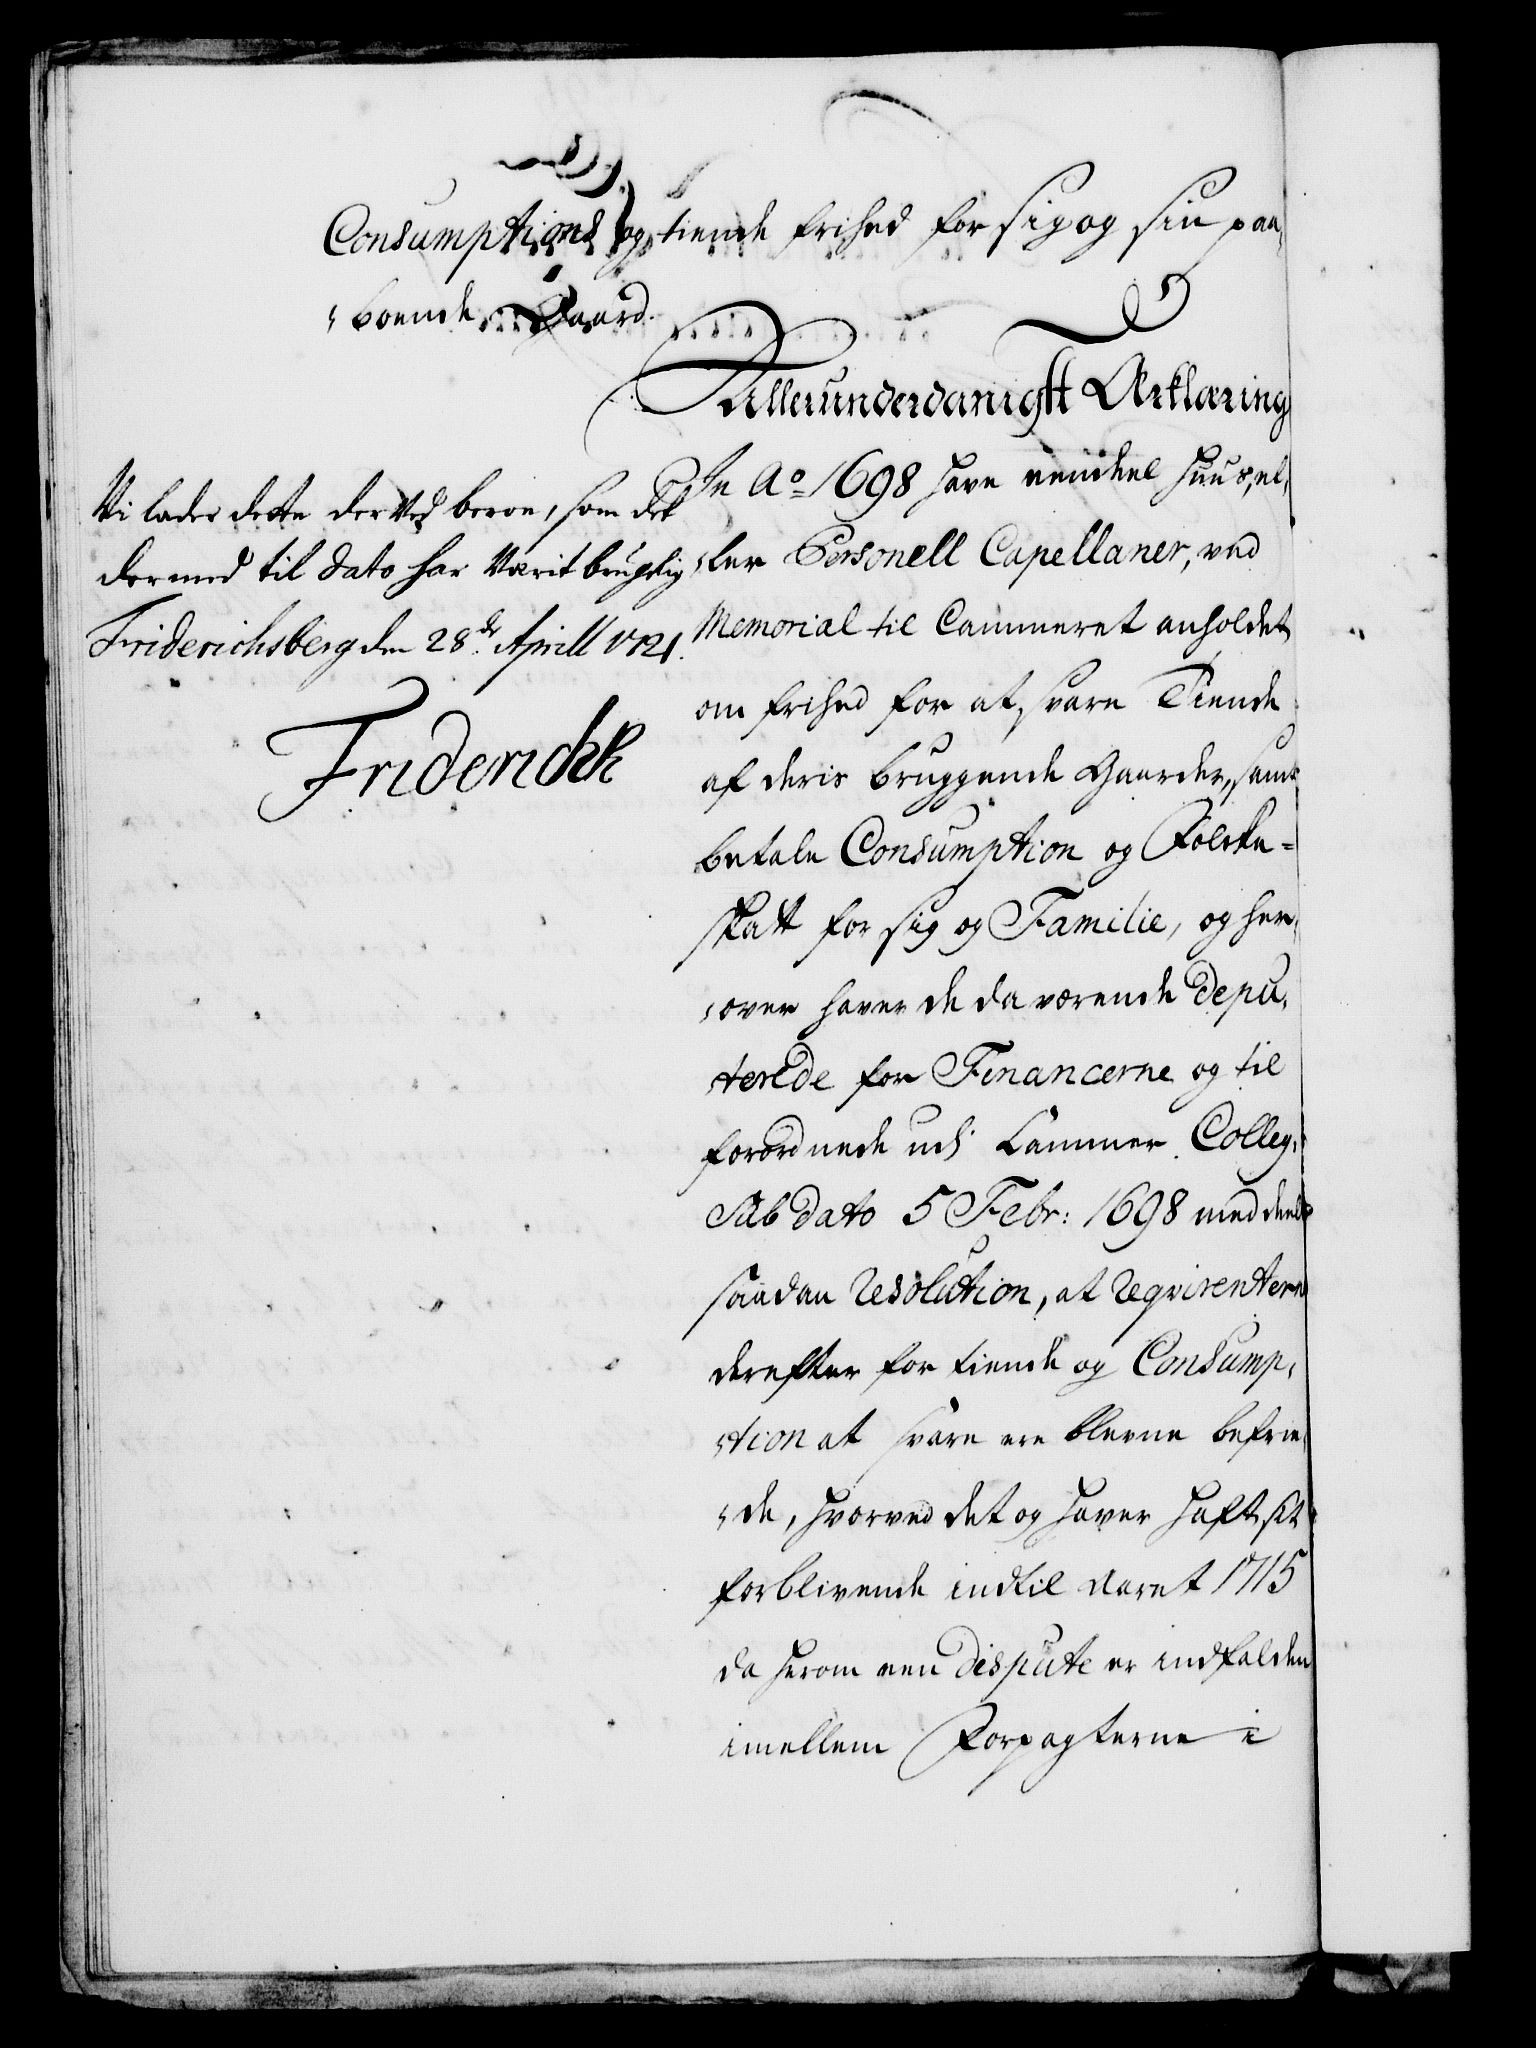 Consumptions og tiende frihed for sig og sin paa,
,boende Gaard.
Allerunderdanigst Erklæring
Vi lader dette derved beroe, som det
dermed til dato har værit brugelig
Friderichsberg den 28de Aprill 1721.
Friderich R
In Ao 1698 have eendeel Huus, el,
,ler Personell Capellaner, ved
Memorial til Cammeret anholdet
om frihed for at svare Tiende
af deris bruggende Gaarder, samt
betale Consumption og Folcke-
skatt for sig og Familie, og her,
,over haver de da værende Depu,
terede for Financerne og til
forordnede udi Cammer Colleg:
Sub dato 5 Febr: 1698 meddeelt
saadan Resolution, at Reqvirenterne
derefter for tiende og Consump,
,tion at svare ere blevne befrie,
,de, hvorved det og haver haft sit
forblivende indtil Aaret 1715
da herom een Dispute er indfalden
imellem Forpagterne i